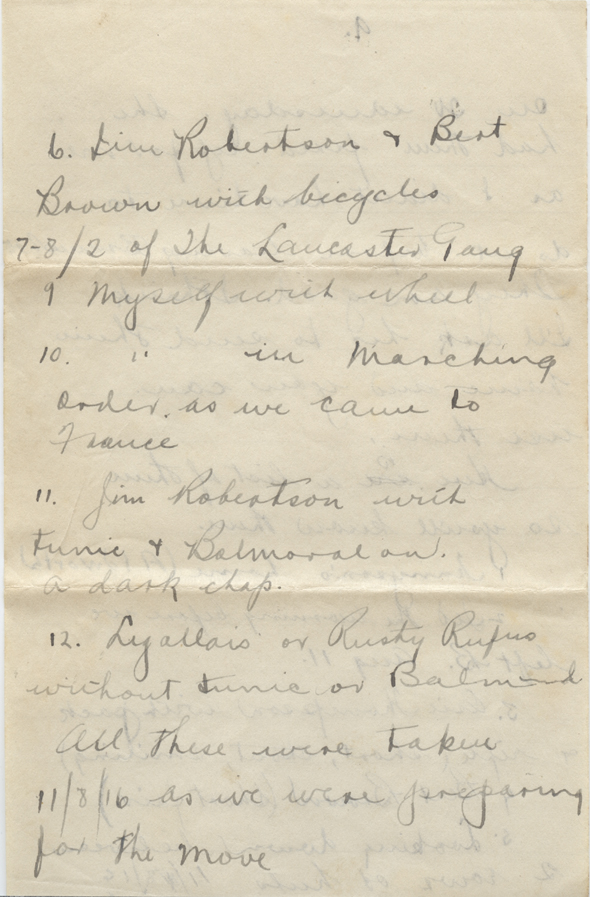 9.
6. Jim Robertson & Bert
Brown with bicycles
7-8/2 of The Lancaster Gang
9 Myself with wheel
10. " in Marching
order. as we came to
France
11. Jim Robertson with
tunic & Balmoral on.
a dark chap.
12. or Rusty Rufus
without tunic or
All these were taken
11/8/16 as we were preparing
for the move